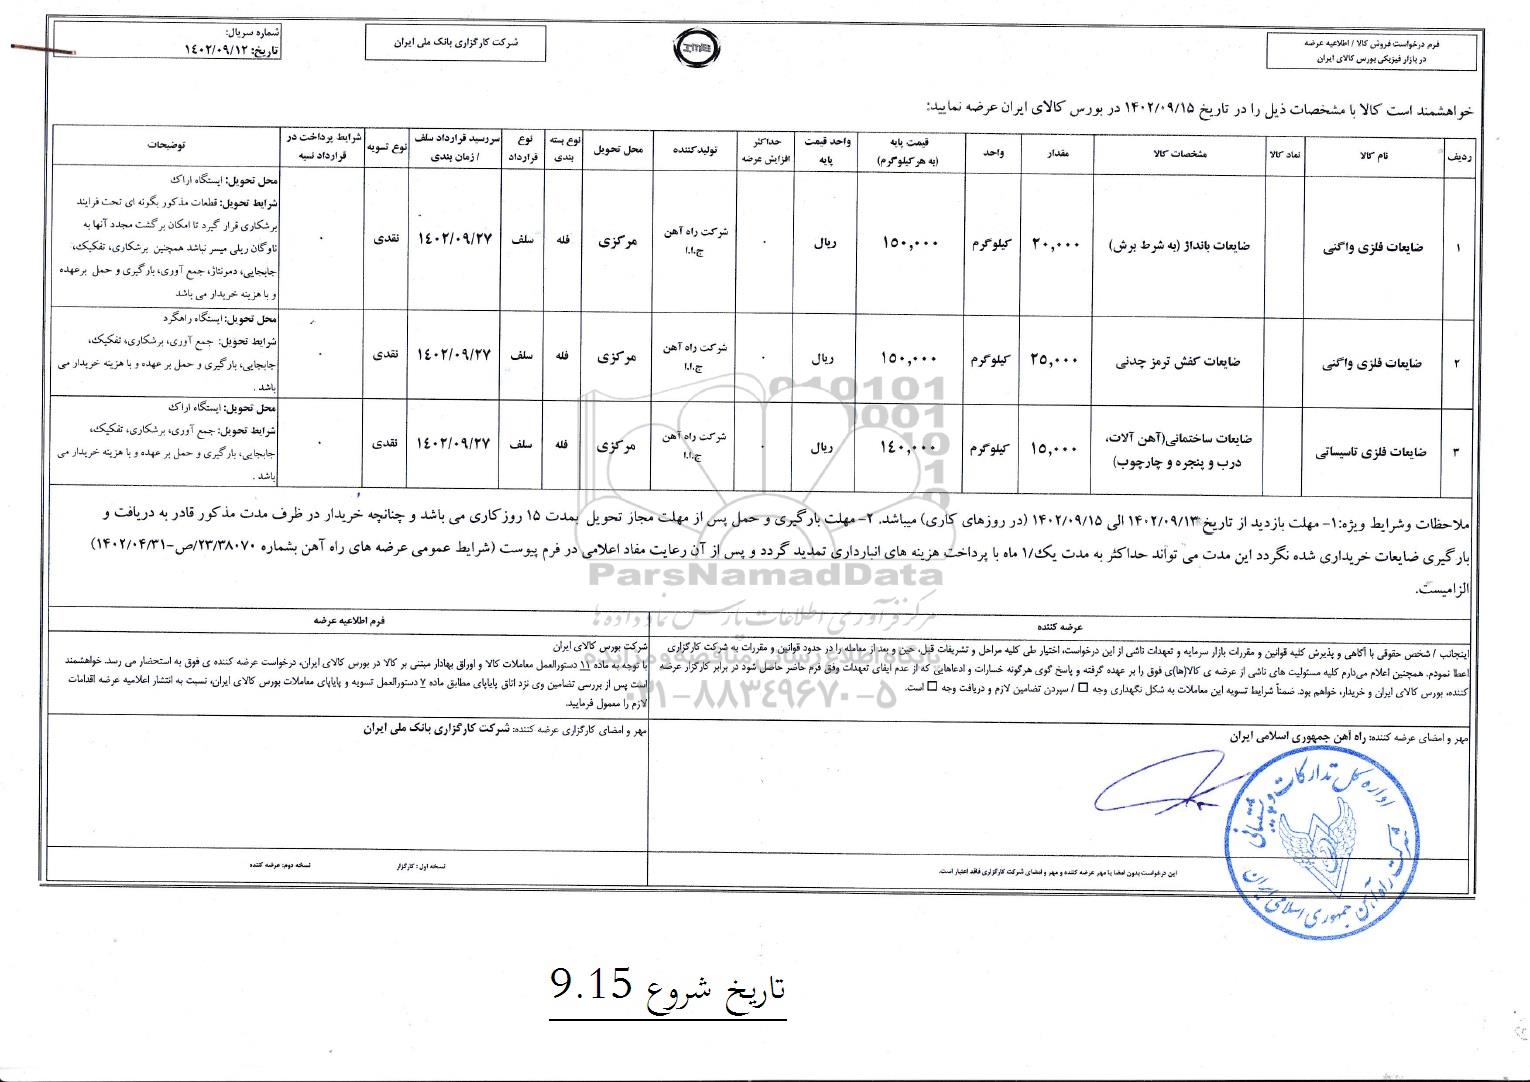 فرم درخواست فروش کالا / اطلاعیه عرضه
در بازار فیزیکی بورس کالای ایران
IME
شرکت کارگزاری بانک ملی ایران
شماره سریال:
تاریخ: ۱۴۰۲/۰۹/۱۲
خواهشمند است کالا با مشخصات ذیل را در تاریخ ۱۴۰۲/۰۹/۱۵ در بورس کالای ایران عرضه نمایید:
ردیف | نام کالا | نماد کالا | مشخصات کالا | مقدار | واحد | قیمت پایه (به هر کیلوگرم) | واحد قیمت پایه | حداکثر افزایش عرضه | تولیدکننده | محل تحویل | نوع بسته بندی | نوع قرارداد | سررسید قرارداد سلف / زمان بندی | نوع تسویه | شرایط پرداخت در قرارداد نسیه | توضیحات
۱ | ضایعات فلزی واگنی | ضایعات بانداژ (به شرط برش) | ۲۰,۰۰۰ | کیلوگرم | ۱۵۰,۰۰۰ | ریال | ۰ | شرکت راه آهن ج.ا.ا | مرکزی | فله | سلف | ۱۴۰۲/۰۹/۲۷ | نقدی | ۰
محل تحویل: ایستگاه اراک
شرایط تحویل: قطعات مذکور بگونه ای تحت فرایند
برشکاری قرار گیرد تا امکان برگشت مجدد آنها به
ناوگان ریلی میسر نباشد همچنین برشکاری، تفکیک،
جابجایی، دمونتاژ، جمع آوری، بارگیری و حمل برعهده
و با هزینه خریدار می باشد
۲ | ضایعات فلزی واگنی | ضایعات کفش ترمز چدنی | ۲۵,۰۰۰ | کیلوگرم | ۱۵۰,۰۰۰ | ریال | ۰ | شرکت راه آهن ج.ا.ا | مرکزی | فله | سلف | ۱۴۰۲/۰۹/۲۷ | نقدی | ۰
محل تحویل: ایستگاه راهگرد
شرایط تحویل: جمع آوری، برشکاری، تفکیک،
جابجایی، بارگیری و حمل بر عهده و با هزینه خریدار می
باشد .
۳ | ضایعات فلزی تاسیساتی | ضایعات ساختمانی(آهن آلات، درب و پنجره و چارچوب) | ۱۵,۰۰۰ | کیلوگرم | ۱۴۰,۰۰۰ | ریال | ۰ | شرکت راه آهن ج.ا.ا | مرکزی | فله | سلف | ۱۴۰۲/۰۹/۲۷ | نقدی | ۰
محل تحویل: ایستگاه اراک
شرایط تحویل: جمع آوری، برشکاری، تفکیک،
جابجایی، بارگیری و حمل بر عهده و با هزینه خریدار می
باشد .
ملاحظات وشرایط ویژه:۱- مهلت بازدید از تاریخ ۱۴۰۲/۰۹/۱۳ الی ۱۴۰۲/۰۹/۱۵ (در روزهای کاری) میباشد. ۲- مهلت بارگیری و حمل پس از مهلت مجاز تحویل بمدت ۱۵ روزکاری می باشد و چنانچه خریدار در ظرف مدت مذکور قادر به دریافت و
بارگیری ضایعات خریداری شده نگردد این مدت می تواند حداکثر به مدت یک/۱ ماه با پرداخت هزینه های انبارداری تمدید گردد و پس از آن رعایت مفاد اعلامی در فرم پیوست (شرایط عمومی عرضه های راه آهن بشماره ۲۳/۳۸۰۷۰/ص-۱۴۰۲/۰۴/۳۱)
الزامیست.
ParsNamadData
مرکز فرآوری اطلاعات پارس نماد داده ها
پایگاه اطلاع رسانی مناقصه و مزایده
۰۲۱-۸۸۳۴۹۶۷۰-۵
عرضه کننده
اینجانب / شخص حقوقی با آگاهی و پذیرش کلیه قوانین و مقررات بازار سرمایه و تعهدات ناشی از این درخواست، اختیار طی کلیه مراحل و تشریفات قبل، حین و بعد از معامله را در حدود قوانین و مقررات به شرکت کارگزاری
اعطا نمودم. همچنین اعلام می‌دارم کلیه مسئولیت های ناشی از عرضه ی کالا(ها)ی فوق را بر عهده گرفته و پاسخ گوی هرگونه خسارات و ادعاهایی که از عدم ایفای تعهدات وفق فرم حاضر حاصل شود در برابر کارگزار عرضه
کننده، بورس کالای ایران و خریدار، خواهم بود. ضمناً شرایط تسویه این معاملات به شکل نگهداری وجه □ / سپردن تضامین لازم و دریافت وجه □ است.
فرم اطلاعیه عرضه
شرکت بورس کالای ایران
با توجه به ماده ۱۱ دستورالعمل معاملات کالا و اوراق بهادار مبتنی بر کالا در بورس کالای ایران، درخواست عرضه کننده ی فوق به استحضار می رسد. خواهشمند
است پس از بررسی تضامین وی نزد اتاق پایاپای مطابق ماده ۷ دستورالعمل تسویه و پایاپای معاملات بورس کالای ایران، نسبت به انتشار اعلامیه عرضه اقدامات
لازم را معمول فرمایید.
مهر و امضای عرضه کننده: راه آهن جمهوری اسلامی ایران
مهر و امضای کارگزاری عرضه کننده: شرکت کارگزاری بانک ملی ایران
اداره کل تدارکات و پشتیبانی
شرکت راه آهن جمهوری اسلامی ایران
این درخواست بدون امضا یا مهر عرضه کننده و مهر و امضای شرکت کارگزاری فاقد اعتبار است.
نسخه اول : کارگزار
نسخه دوم: عرضه کننده
تاریخ شروع 9.15